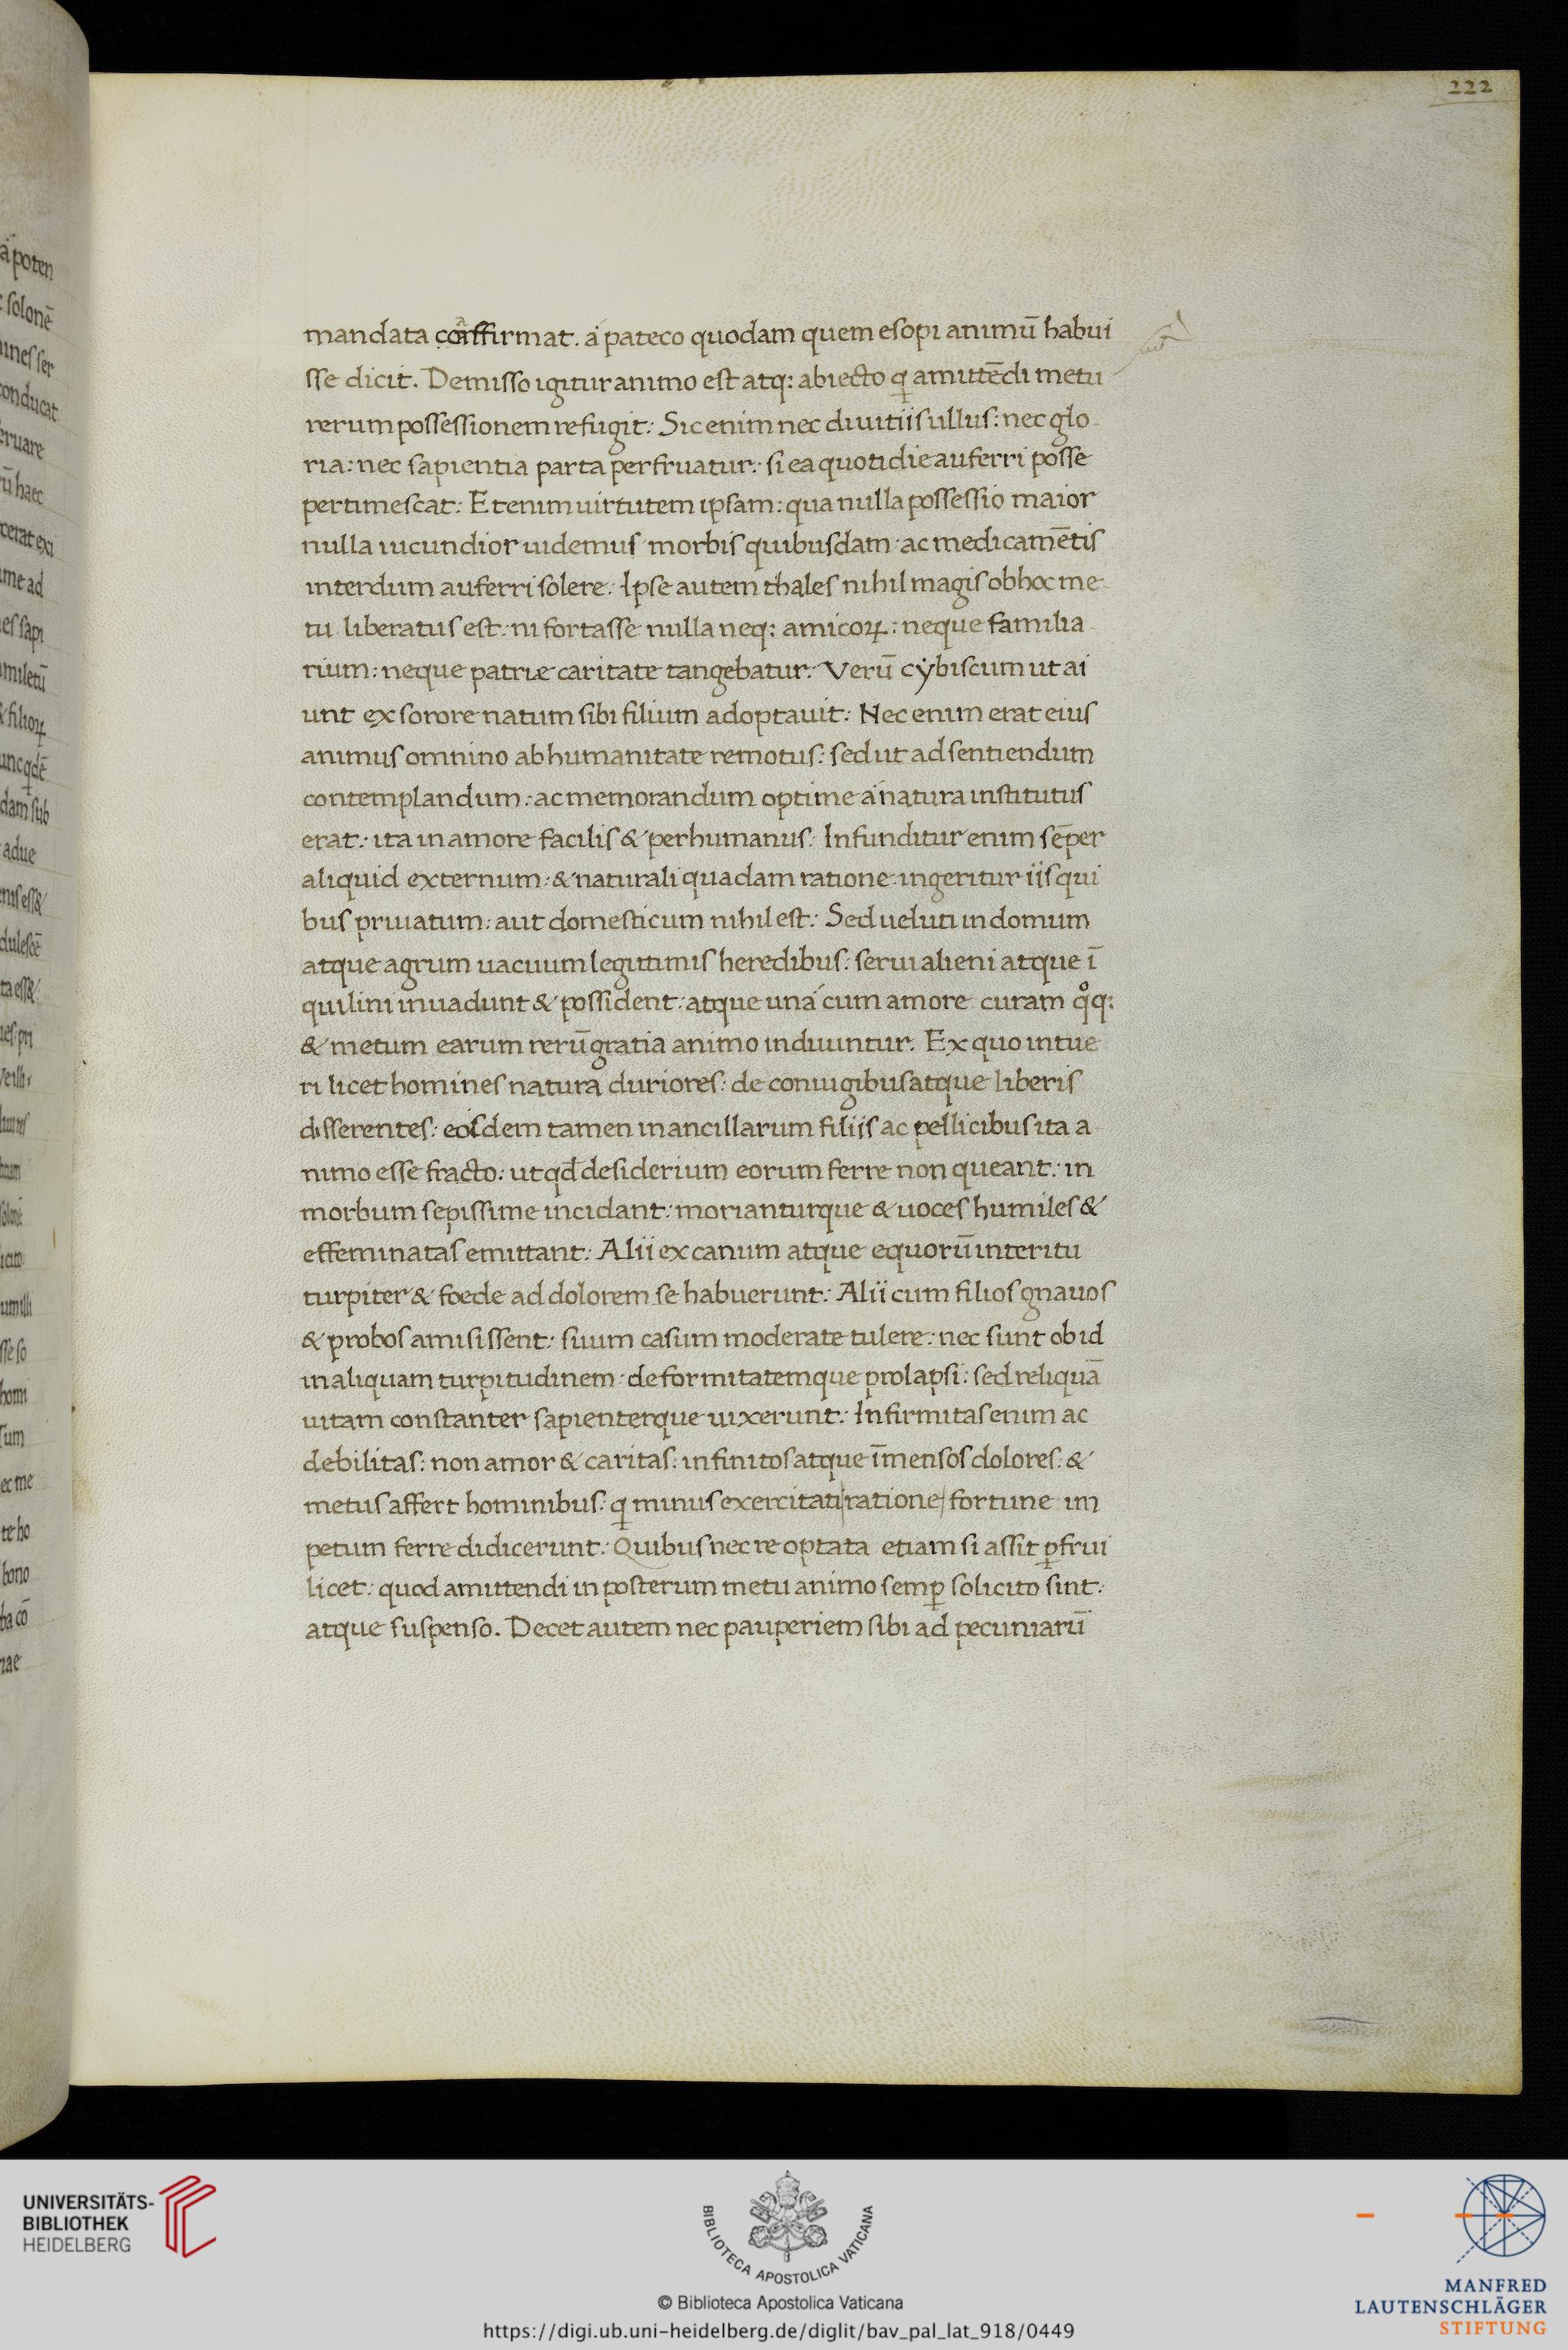 222
mandata cōffirmat. á pateco quodam quem esopi animū habui
sse dicit. Demisso igitur animo est atq: abiecto q̨ amittēdi metu
rerum possessionem refugit: Sic enim nec diuitiis ullus: nec glo
ria: nec sapientia parta perfruatur: si ea quotidie auferri posse
pertimescat: Etenim uirtutem ipsam: qua nulla possessio maior
nulla iucundior uidemus morbis quibusdam ac medicamētis
interdum auferri solere: Ipse autem thales nihil magis ob hoc me
tu liberatus est: ni fortasse nulla neq: amicoꝝ: neque familia
rium: neque patriæ caritate tangebatur: Verū cẏbiscum ut ai
unt ex sorore natum sibi filium adoptauit: Nec enim erat eius
animus omnino ab humanitate remotus: sed ut ad sentiendum
contemplandum: ac memorandum optime á natura institutus
erat: ita in amore facilis & perhumanus: Infunditur enim sēper
aliquid externum: & naturali quadam ratione ingeritur iis qui
bus priuatum: aut domesticum nihil est: Sed ueluti in domum
atque agrum uacuum legittimis heredibus: serui alieni atque ī
quilini inuadunt & possident: atque uná cum amore curam qͦq:
& metum earum rerū gratia animo induuntur. Ex quo intue
ri licet homines natura duriores: de coniugibus atque liberis
disserentes: eosdem tamen in ancillarum filiis ac pellicibus ita a
nimo esse fracto: ut qd̄ desiderium eorum ferre non queant: in
morbum sepissime incidant: morianturque & uoces humiles &
effeminatas emittant: Alii ex canum atque equorū interitu
turpiter & foede ad dolorem se habuerunt: Alii cum filios gnauos
& probos amisissent: suum casum moderate tulere: nec sunt ob id
in aliquam turpitudinem deformitatemque prolapsi: sed reliquā
uitam constanter sapienterque uixerunt: Infirmitas enim ac
debilitas: non amor & caritas: infinitos atque īmensos dolores: &
metus affert hominibus: q̨ minus exercitati ratione fortune im
petum ferre didicerunt: Quibus nec re optata etiam si assit ꝑfrui
licet: quod amittendi in posterum metu animo semꝑ solicito sint:
atque suspenso. Decet autem nec pauperiem sibi ad pecuniarū
UNIVERSITÄTS-
BIBLIOTHEK
HEIDELBERG
BIBLIOTECA APOSTOLICA VATICANA
© Biblioteca Apostolica Vaticana
https://digi.ub.uni-heidelberg.de/diglit/bav_pal_lat_918/0449
MANFRED
LAUTENSCHLÄGER
STIFTUNG